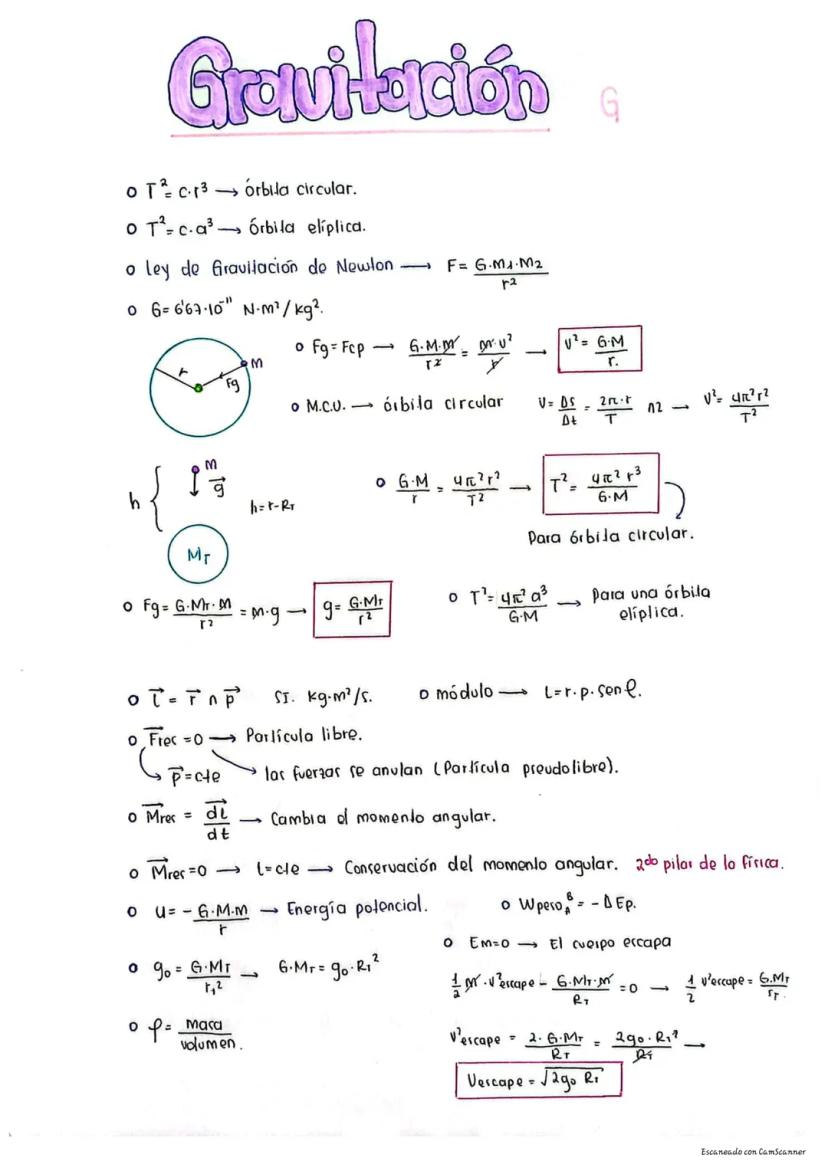 Gravitación G
o T² = c·r³ → órbita circular.
o T² = c·a³ → órbita elíptica.
o Ley de Gravitación de Newton → F = G·M1·M2 / r²
o G = 6'67·10⁻¹¹ N·m²/kg².
r Fg M
o Fg = Fcp → G·M·m / r² = m·v² / r → v² = G·M / r.
o M.C.U. → órbita circular v = Δs / Δt = 2π·r / T ∧2 → v² = 4π²r² / T²
h { M g⃗ h = r - RT
MT
o G·M / r = 4π²r² / T² → T² = 4π² r³ / G·M
Para órbita circular.
o Fg = G·MT·m / r² = m·g → g = G·MT / r²
o T² = 4π² a³ / G·M → Para una órbita
elíptica.
o L⃗ = r⃗ ∧ p⃗ SI. kg·m²/s. o módulo → L = r·p·sen φ.
o F⃗res = 0 → Partícula libre.
p⃗ = cte las fuerzas se anulan (Partícula pseudolibre).
o M⃗res = dL⃗ / dt → Cambia el momento angular.
o M⃗res = 0 → L = cte → Conservación del momento angular. 2do pilar de la física.
o U = - G·M·m / r → Energía potencial. o Wpeso A B = - ΔEp.
o Em=0 → El cuerpo escapa
o g₀ = G·MT / rT² → G·MT = g₀·RT²
1/2 m·v²escape - G·MT·m / RT = 0 → 1/2 v²escape = G·MT / rT.
o ρ = masa / volumen.
v²escape = 2·G·MT / RT = 2g₀·RT² / RT →
Vescape = √2g₀ RT
Escaneado con CamScanner